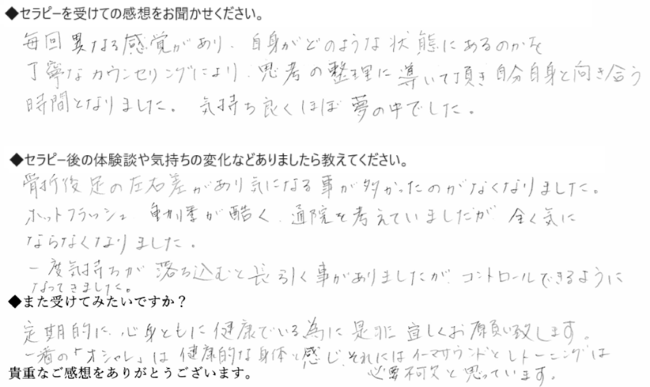 ◆セラピーを受けての感想をお聞かせください。
毎回異なる感覚があり、自身がどのような状態にあるのかを
丁寧なカウンセリングにより、思考の整理に導いて頂き自分自身と向き合う
時間となりました。気持ち良くほぼ夢の中でした。
◆セラピー後の体験談や気持ちの変化などありましたら教えてください。
骨折後足の左右差があり気になる事が多かったのがなくなりました。
ホットフラッシュ 動悸が酷く、通院を考えていましたが 全く気に
ならなくなりました。
一度気持ちが落ち込むと長引く事がありましたが、コントロールできるように
なってきました。
◆また受けてみたいですか？
定期的に、心身ともに健康でいる為に是非宜しくお願い致します。
一番の「オシャレ」は健康的な身体と感じ、それにはイーマサウンドとトレーニングは
必要不可欠と思っています。
貴重なご感想をありがとうございます。